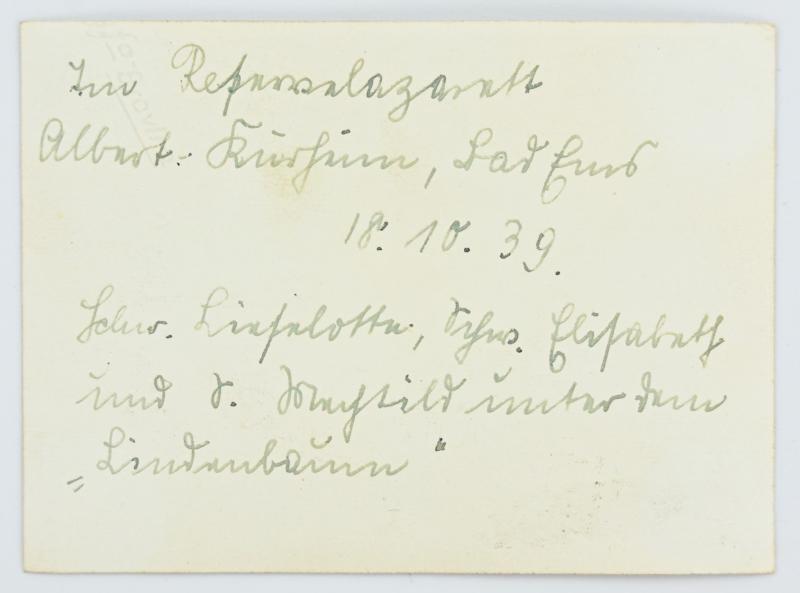 Im Reservelazarett
Albert-Kurheim, Bad Ems
18. 10. 39.
Schw. Lieselotte, Schw. Elisabeth
und S. Mechtild unter dem
„Lindenbaum“